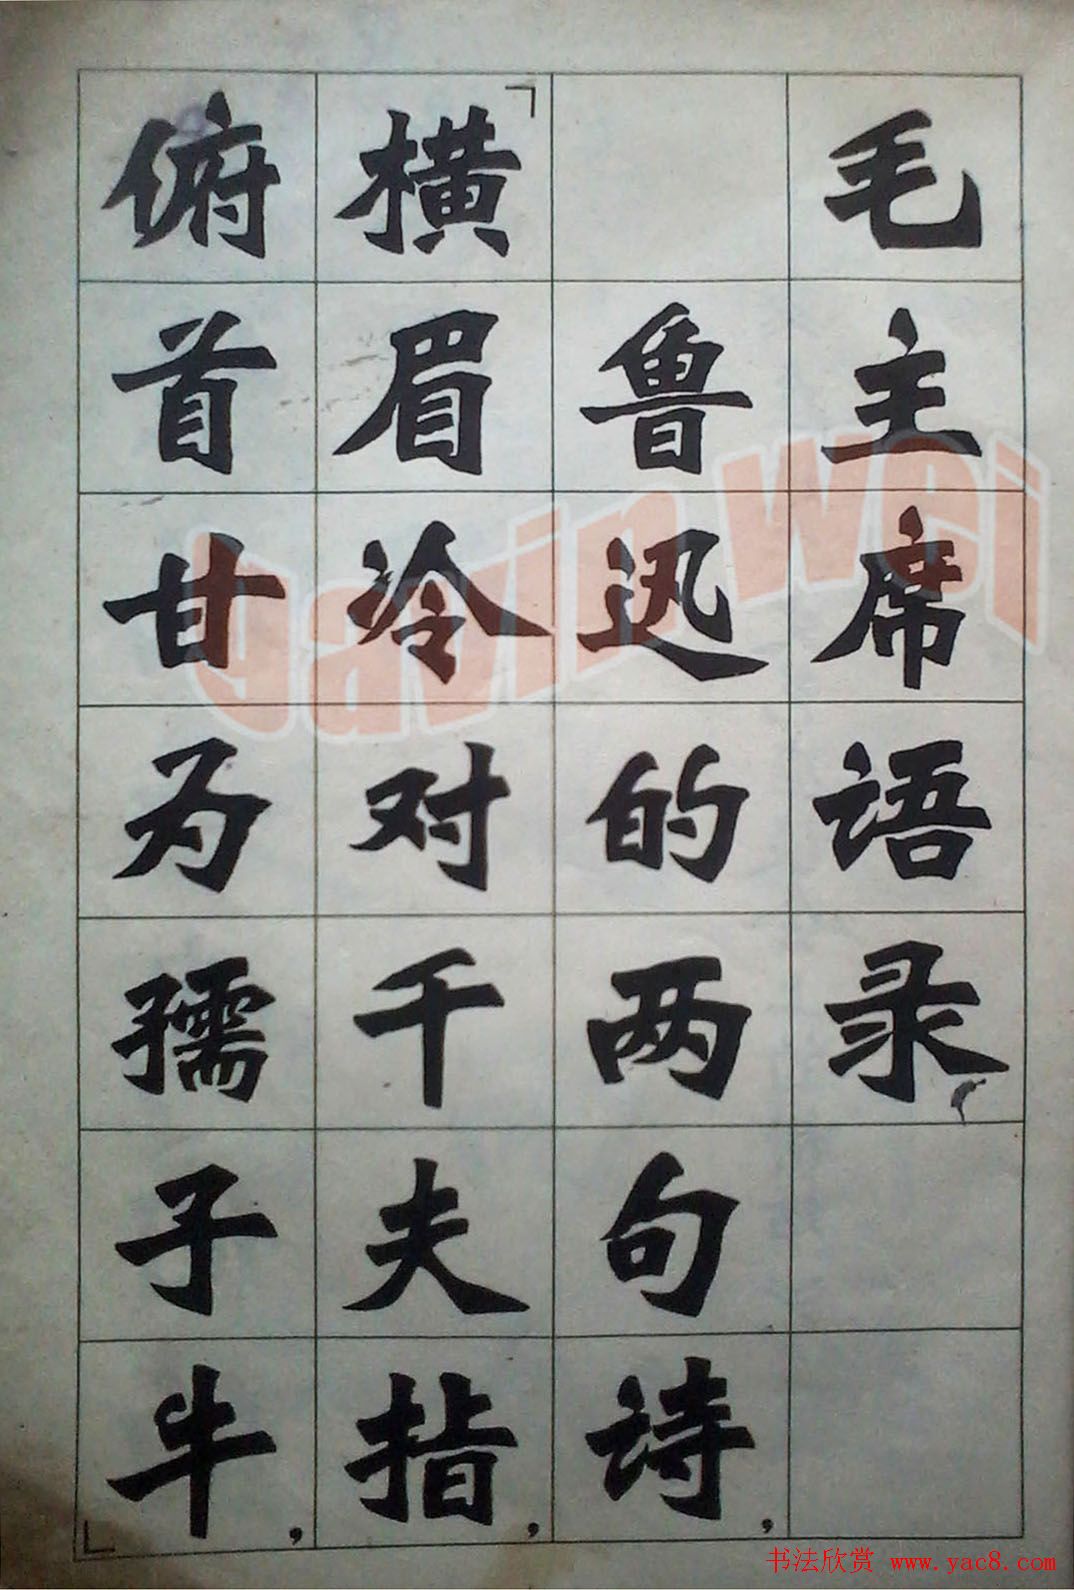 毛主席语录
鲁迅的两句诗，
﹁横眉冷对千夫指，
俯首甘为孺子牛﹂，
Gavin wei
书法欣赏 www.yac8.com